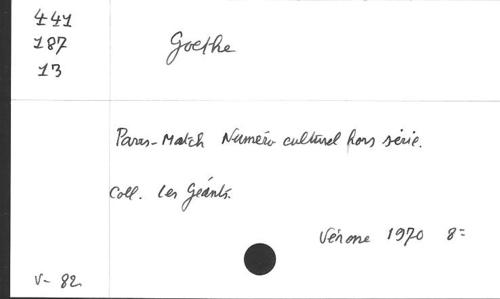 441
187
13
Goethe
Paris-Match Numéro culturel hors série.
Coll. Les Géants.
Vérone 1970 8=
V- 82